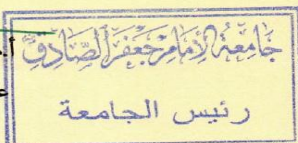 جَامِعَةُ الإِمَامِ جَعْفَرِ الصَّادِقِ
رئيس الجامعة